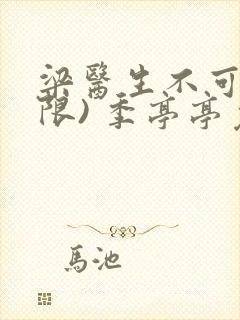 梁醫生不可
限) 季亭亭
馬池